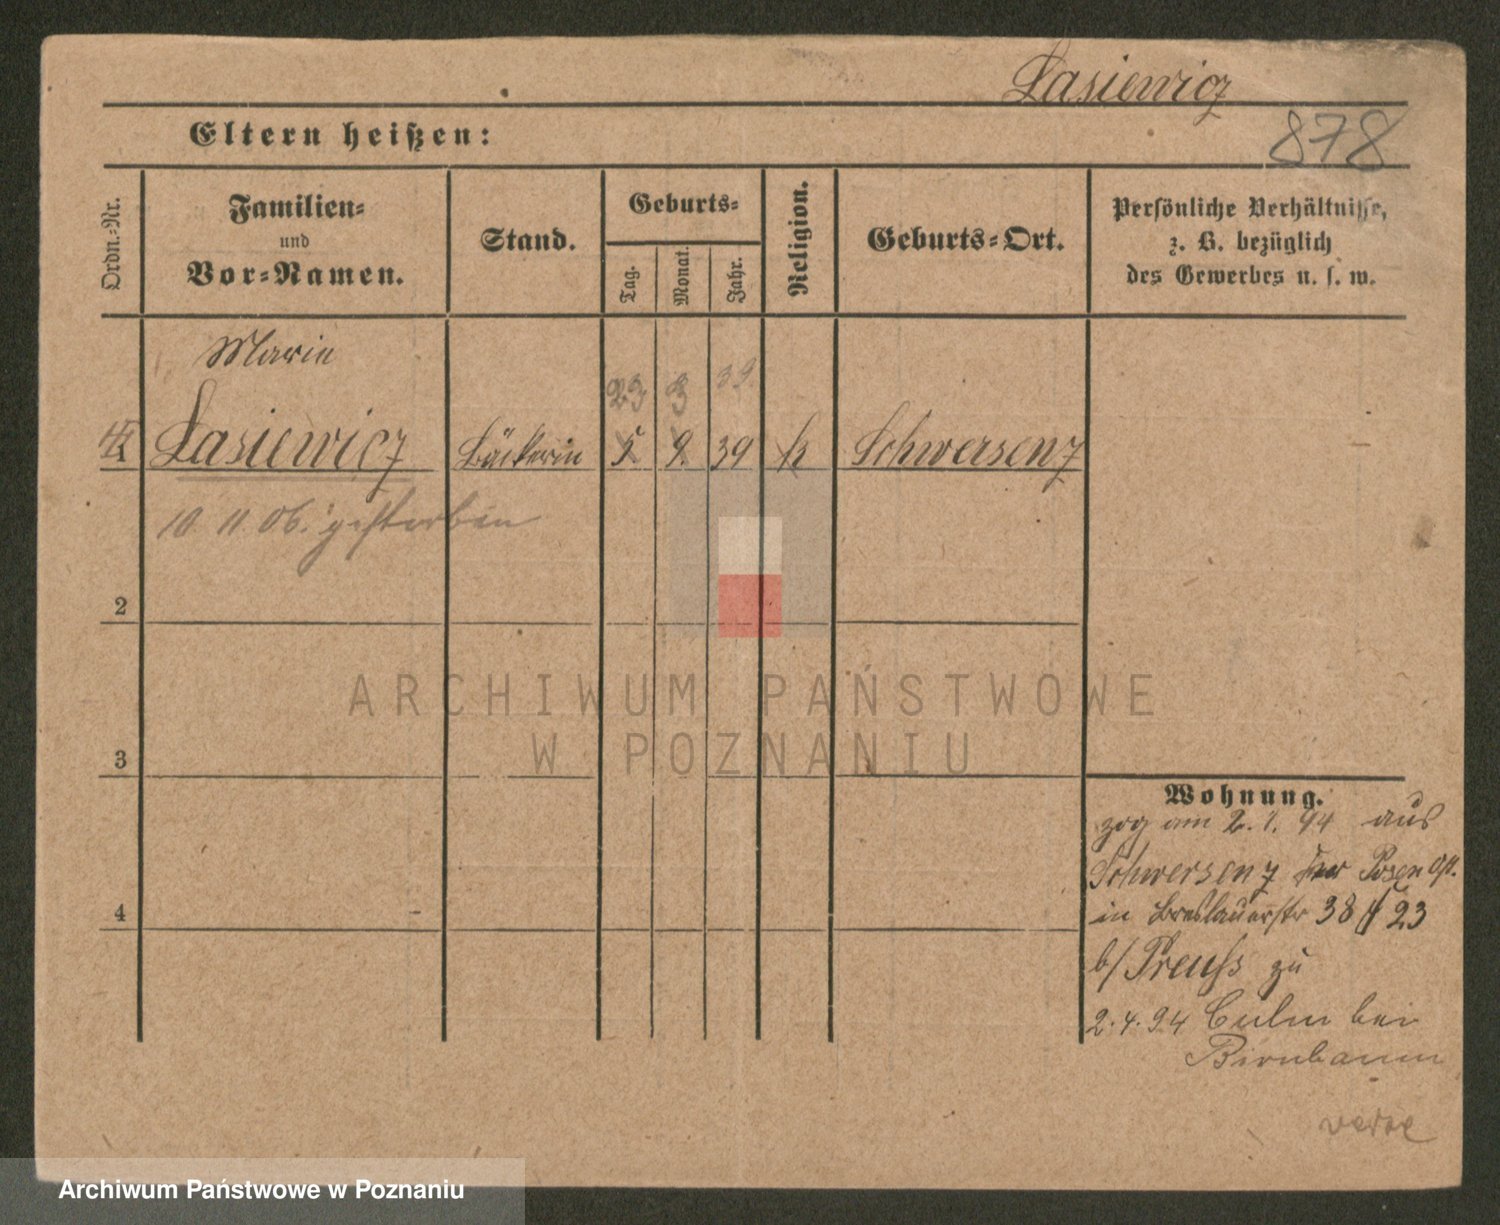 Lasiewicz
878
Eltern heißen:
Ordn.-Nr.
Familien-
und
Vor-Namen.
Stand.
Geburts-
Tag.
Monat.
Jahr.
Religion.
Geburts-Ort.
Persönliche Verhältnisse,
z. B. bezüglich
des Gewerbes u. s. w.
Marie
23 3 39
Lasiewicz Bäckerin 5 9. 39 k Schwersenz
10 11 06. gestorben
2
ARCHIWUM PAŃSTWOWE
W POZNANIU
3
Wohnung.
zog am 2. 1. 94 aus
Schwersenz Posen
in Breslauerstr 38 23
b/ Preuß zu
4
2. 4. 94 Culm bei
Birnbaum
Archiwum Państwowe w Poznaniu